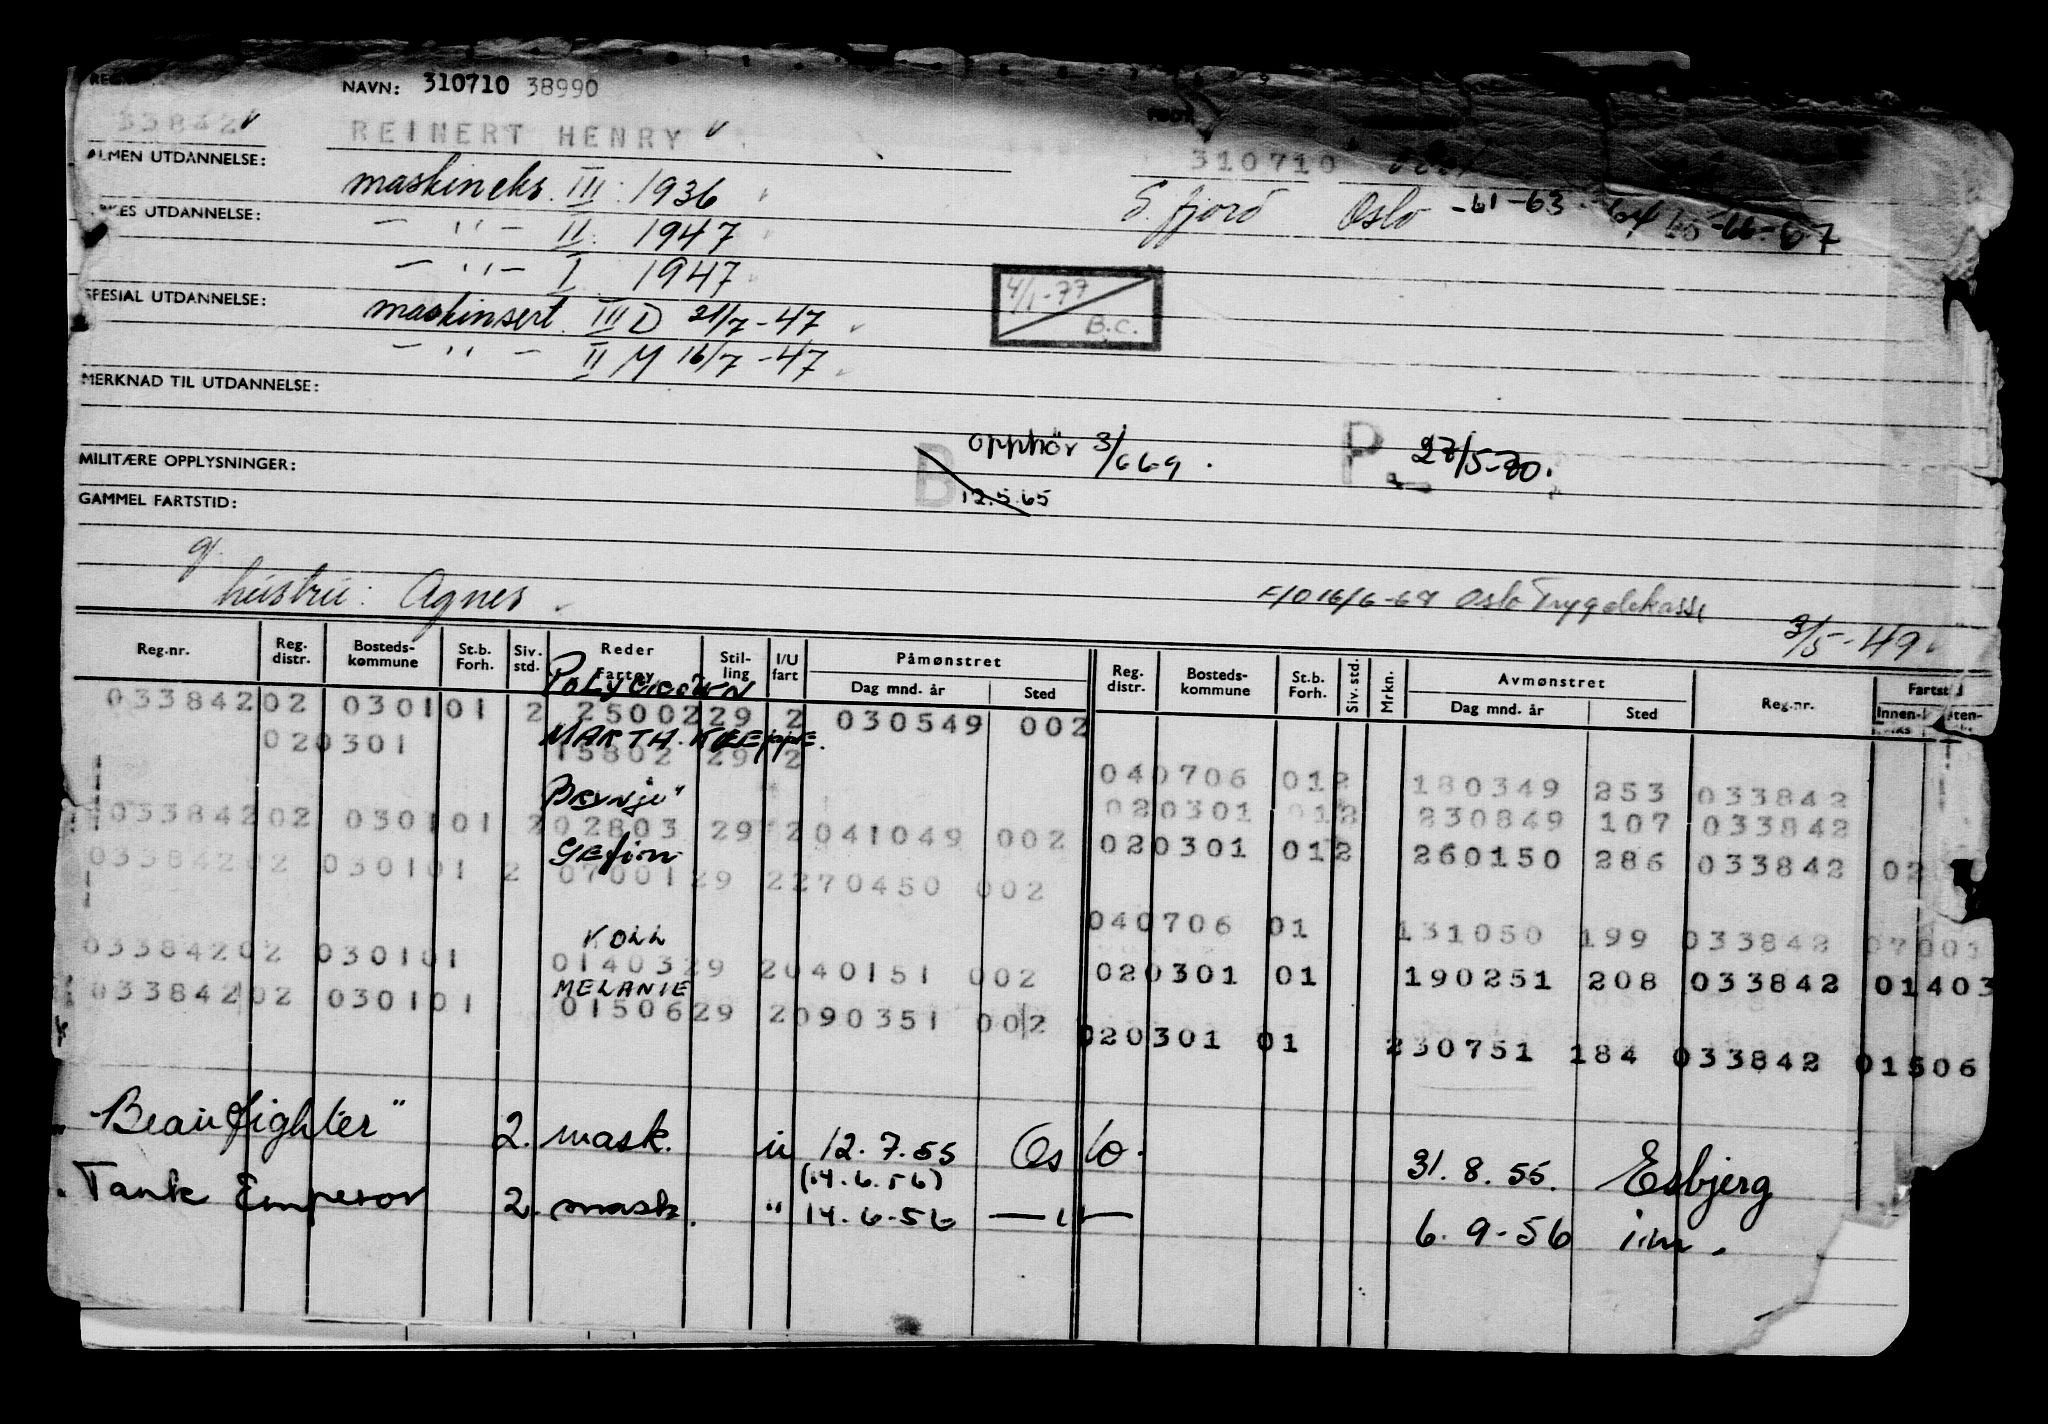 NAVN: 310710 38990
33842 REINERT HENRY
310710
ALMEN UTDANNELSE:
maskineks. III 1936
S. fjord Oslo -61-63-64 65-66-67
YRKES UTDANNELSE:
— " — II. 1947
— " — I 1947
4/1-77 B.C.
SPESIAL UTDANNELSE:
maskinsert. III D 21/7-47
— " — II M 16/7-47
MERKNAD TIL UTDANNELSE:
B opphör 3/6 69.
P 27/5-70.
MILITÆRE OPPLYSNINGER:
12.5.65
GAMMEL FARTSTID:
g.
hustru: Agnes
F/O 16/6-67 Oslo Trygdekasse
3/5-49
Reg.nr. Reg. distr. Bosteds-kommune St.b. Forh. Siv. std. Reder Fartøy Stil-ling I/U fart Påmønstret Dag mnd. år Sted Reg. distr. Bosteds-kommune St.b. Forh. Siv. std. Mrkn. Avmønstret Dag mnd. år Sted Reg.nr. Fartstid Innen-
POLYCROWN
033842 02 0301 01 2 25002 29 2 030549 002
MARTH. KLEPPE.
02 0301 15802 29 2
040706 01 2 180349 253 033842
Brynje"
020301 01 2 230849 107 033842
033842 02 0301 01 2 02803 29 2 041049 002
020301 01 2 260150 286 033842 02
Gefion
033842 02 0301 01 2 07001 29 2 270450 002
040706 01 131050 199 033842 07001
KOLL
033842 02 0301 01 01403 29 2 040151 002
020301 01 190251 208 033842 01403
MELANIE
033842 02 0301 01 01506 29 2 090351 002
020301 01 230751 184 033842 01506
"Beaufighter" 2. mask. u 12.7.55 Oslo. 31.8.55. Esbjerg
(14.6.56)
Tank Emperor 2. mask. " 14.6.56 — " — 6.9-56 i.m.